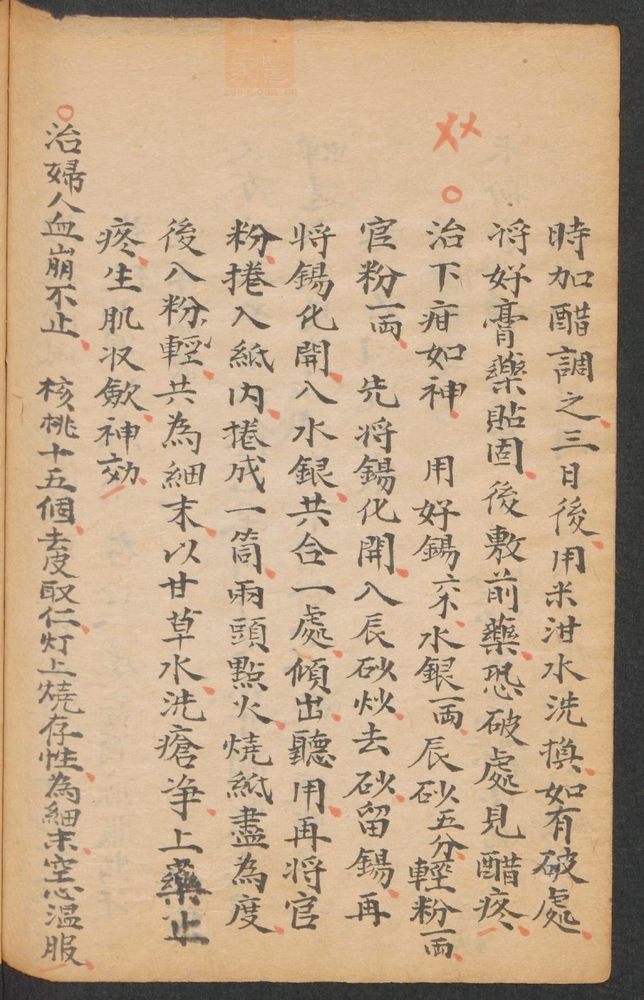 時加醋調之三日後用米泔水洗換如有破處
将好膏藥貼固後敷前藥恐破處見醋疼
治下疳如神 用好錫六水銀一両辰砂五分輕粉一両
官粉一両 先将錫化開入辰砂炒去砂留錫再
将錫化開入水銀共合一處傾出聽用再将官
粉捲入紙内捲成一筒兩頭點火燒紙盡為度
後入粉輕共為細末以甘草水洗瘡净上藥止
疼生肌収歛神効
治婦人血崩不止 核桃十五個去皮取仁灯上燒存性為細末空心温服